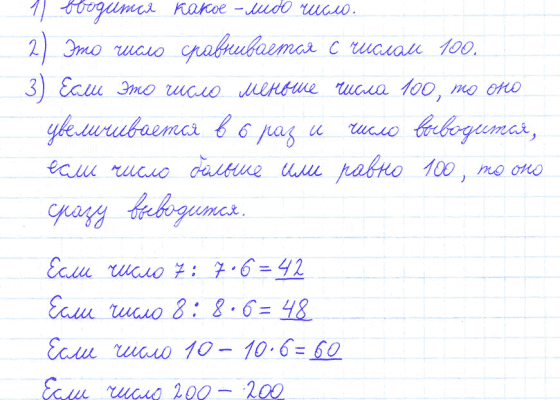 1) вводится какое-либо число.
2) Это число сравнивается с числом 100.
3) Если это число меньше числа 100, то оно
увеличивается в 6 раз и число выводится,
если число больше или равно 100, то оно
сразу выводится.
Если число 7: 7·6=42
Если число 8: 8·6=48
Если число 10 – 10·6=60
Если число 200 – 200